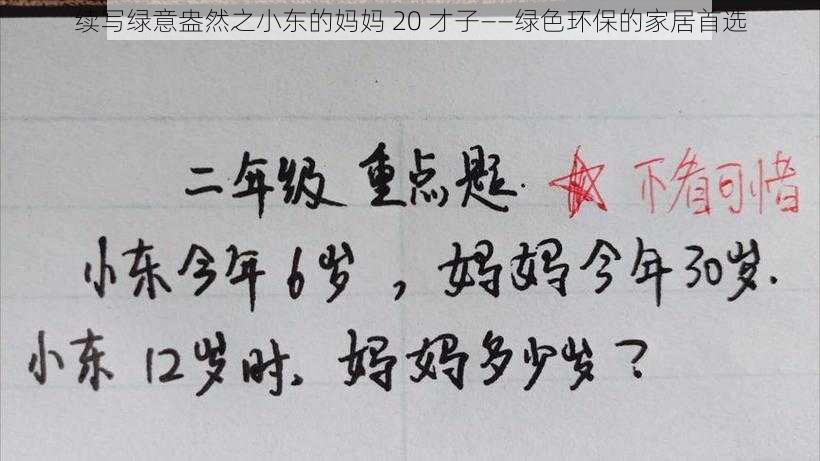 续写绿意盎然之小东的妈妈 20 才子——绿色环保的家居首选
二年级 重点题. 不看可惜
小东今年6岁，妈妈今年30岁.
小东12岁时，妈妈多少岁？